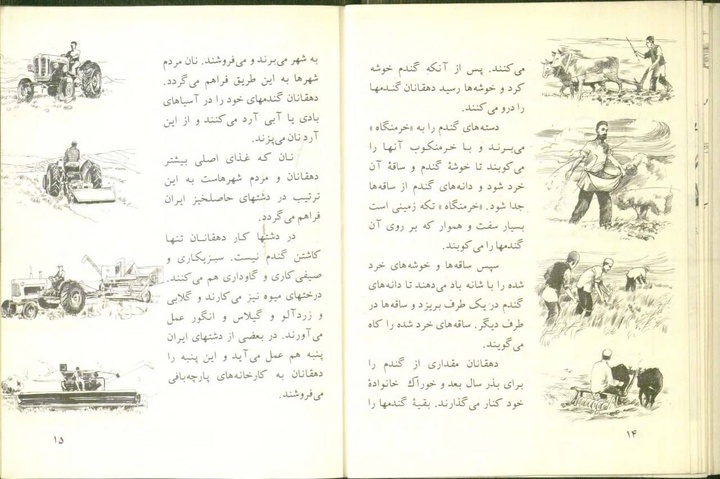 می‌کنند. پس از آنکه گندم خوشه
کرد و خوشه‌ها رسید دهقانان گندمها
را درو می‌کنند.
دسته‌های گندم را به «خرمنگاه»
می‌برند و با خرمنکوب آنها را
می‌کوبند تا خوشهٔ گندم و ساقهٔ آن
خرد شود و دانه‌های گندم از ساقه‌ها
جدا شود. «خرمنگاه» تکه زمینی است
بسیار سفت و هموار که بر روی آن
گندمها را می‌کوبند.
سپس ساقه‌ها و خوشه‌های خرد
شده را با شانه باد می‌دهند تا دانه‌های
گندم در یک طرف بریزد و ساقه‌ها در
طرف دیگر. ساقه‌های خرد شده را کاه
می‌گویند.
دهقانان مقداری از گندم را
برای بذر سال بعد و خوراک خانوادهٔ
خود کنار می‌گذارند. بقیهٔ گندمها را
۱۴
به شهر می‌برند و می‌فروشند. نان مردم
شهرها به این طریق فراهم می‌گردد.
دهقانان گندمهای خود را در آسیاهای
بادی یا آبی آرد می‌کنند و از این
آرد نان می‌پزند.
نان که غذای اصلی بیشتر
دهقانان و مردم شهرهاست به این
ترتیب در دشتهای حاصلخیز ایران
فراهم می‌گردد.
در دشتها کار دهقانان تنها
کاشتن گندم نیست. سبزیکاری و
صیفی‌کاری و گاوداری هم می‌کنند.
درختهای میوه نیز می‌کارند و گلابی
و زردآلو و گیلاس و انگور عمل
می‌آورند. در بعضی از دشتهای ایران
پنبه هم عمل می‌آید و این پنبه را
دهقانان به کارخانه‌های پارچه‌بافی
می‌فروشند.
۱۵